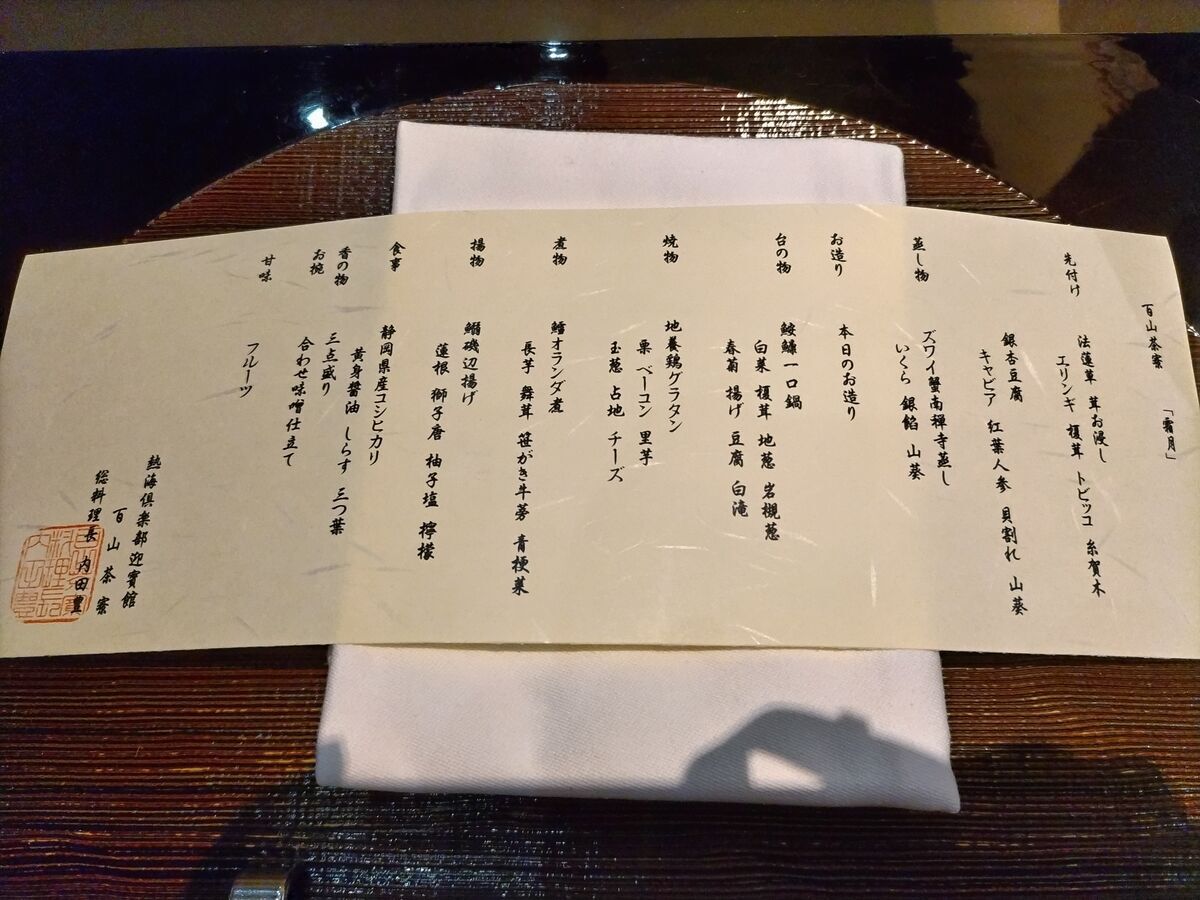 百山茶寮 「霜月」
先付け 法蓮草 茸お浸し
エリンギ 榎茸 トビッコ 糸賀木
銀杏豆腐
キャビア 紅葉人参 貝割れ 山葵
蒸し物 ズワイ蟹南禅寺蒸し
いくら 銀餡 山葵
お造り 本日のお造り
台の物 鮟鱇一口鍋
白菜 榎茸 地葱 岩槻葱
春菊 揚げ 豆腐 白滝
焼物 地養鶏グラタン
栗 ベーコン 里芋
玉葱 占地 チーズ
煮物 鱈オランダ煮
長芋 舞茸 笹がき牛蒡 青梗菜
揚物 鰯磯辺揚げ
蓮根 獅子唐 柚子塩 檸檬
食事 静岡県産コシヒカリ
黄身醤油 しらす 三つ葉
香の物 三点盛り
お椀 合わせ味噌仕立て
甘味 フルーツ
熱海倶楽部迎賓館
百山茶寮
総料理長 内田豊